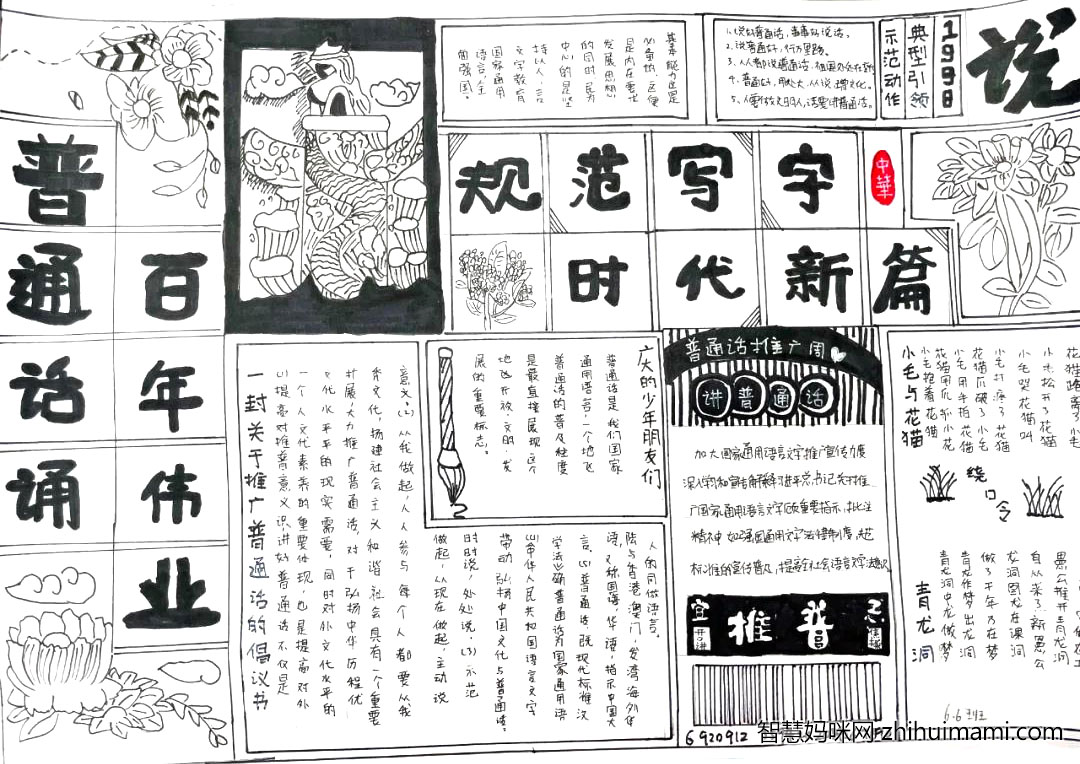 普通话诵
百年伟业
基本能力也是
必备的
是内在要求
发展思想
的同时,民为
中心的
持以人
文字教育
国家通用
语言,主
固强国。
1、说好普通话,事事好说话。
2、说普通话,行万里路。
3、人人都说普通话
4、普通话
5、人要做文明人,话要讲普通话。
1998
典型引领
示范动作
说
规范写字
中華
时代新篇
一封关于推广普通话的倡议书
(1)提高对推普意义认识,讲好普通话不仅是
一个人文化素养的重要体现,也是提高对外
文化水平的现实需要,同时对外文化水平的
扩展,大力推广普通话,对于弘扬中华历程优
秀文化,扬建社会主义和谐社会具有一个重要
意义。(2)从我做起,人人参与每个人都要从我
做起,从现在做起,主动说
时时说,处处说。(3)示范
带动弘扬中国文化与普通话。
(4)中华人民共和国语言文字
学法》确普通话为国家通用语
言。(5)普通话既现代标准汉
语,又称国语、华语,指示中国大
陆与香港、澳门、台湾、海外华
人的同做语言。
广大的少年朋友们
普通话是我们国家
通用语言,一个地飞
普通话的普及程度
是最直接展现这个
地飞开放、文明、发
展的重要标志。
普通话推广周
讲普通话
加大国家通用语言文字推广宣传力度
广国家通用语言文字的重要指示,批注
精神,加强国通用文字法律制度,规范
标准的宣传普及,提高全社会语言文字意识
宣
推普
6920912
小毛与花猫
小毛抱着花猫
花猫用爪抓小花
小毛用手拍花猫
花猫爪破了小毛
小毛打疼了花猫
小毛哭花猫叫
小毛松开了花猫
花猫离了小毛
绕口令
青龙洞
青龙洞中龙做梦
青龙作梦出龙洞
做了千年乃在梦
龙洞困龙在深洞
自从来了新愚公
愚公推开青龙洞
6.6班
智慧妈咪网-zhihuimami.com